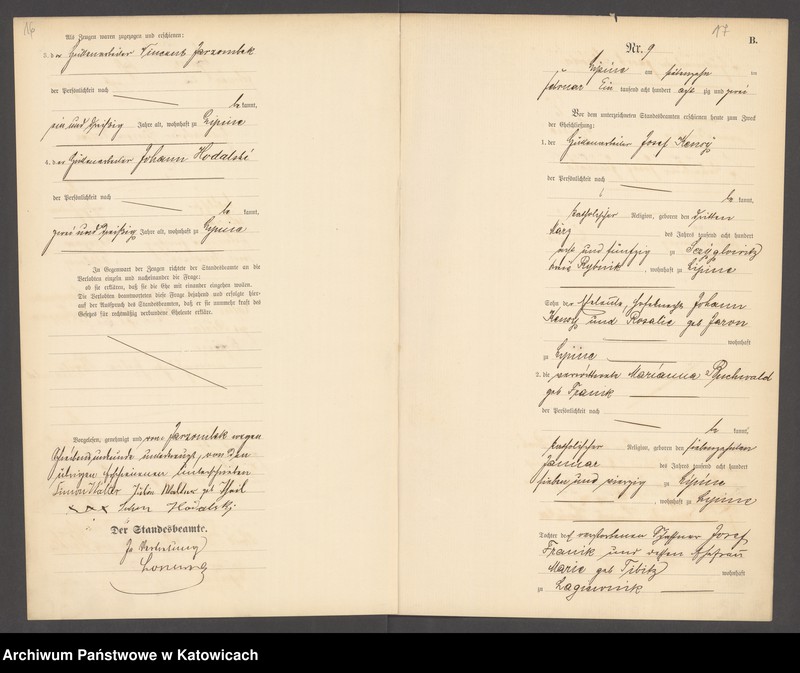 16
Als Zeugen waren zugezogen und erschienen:
3. der Hüttenarbeiter Vincent Jarzombek
der Persönlichkeit nach
be kannt,
und dreißig Jahre alt, wohnhaft zu Lipine
4. der Hüttenarbeiter Johann Hodalski
der Persönlichkeit nach
be kannt,
zwei und dreißig Jahre alt, wohnhaft zu Lipine
In Gegenwart der Zeugen richtete der Standesbeamte an die
Verlobten einzeln und nacheinander die Frage:
ob sie erklären, daß sie die Ehe mit einander eingehen wollen.
Die Verlobten beantworteten diese Frage bejahend und erfolgte hier-
auf der Ausspruch des Standesbeamten, daß er sie nunmehr kraft des
Gesetzes für rechtmäßig verbundene Eheleute erkläre.
Vorgelesen, genehmigt und von Jarzombek wegen
Schreibensunkunde unterkreuzt, von den
übrigen Erschienenen unterschrieben
xxx Hodalski
Der Standesbeamte.
In Vertretung
17
B.
Nr. 9
Lipine am siebenzehn ten
Februar Ein tausend acht hundert acht zig und zwei
Vor dem unterzeichneten Standesbeamten erschienen heute zum Zweck
der Eheschließung:
1. der Hüttenarbeiter Josef
der Persönlichkeit nach
be kannt,
katholischer Religion, geboren den dritten
März des Jahres tausend acht hundert
acht und fünfzig zu
Kreis Rybnik, wohnhaft zu Lipine
Sohn der Eheleute, Johann
und Rosalie geb
wohnhaft
zu Lipine
2. die verwittwete Marianna Buchwald
geb Franik
der Persönlichkeit nach
be kannt,
katholischer Religion, geboren den siebenzehnten
Januar des Jahres tausend acht hundert
sieben und vierzig zu Lipine
, wohnhaft zu Lipine
Tochter des verstorbenen Josef
Franik und dessen Ehefrau
Marie geb wohnhaft
zu Lagiewnik
Archiwum Państwowe w Katowicach